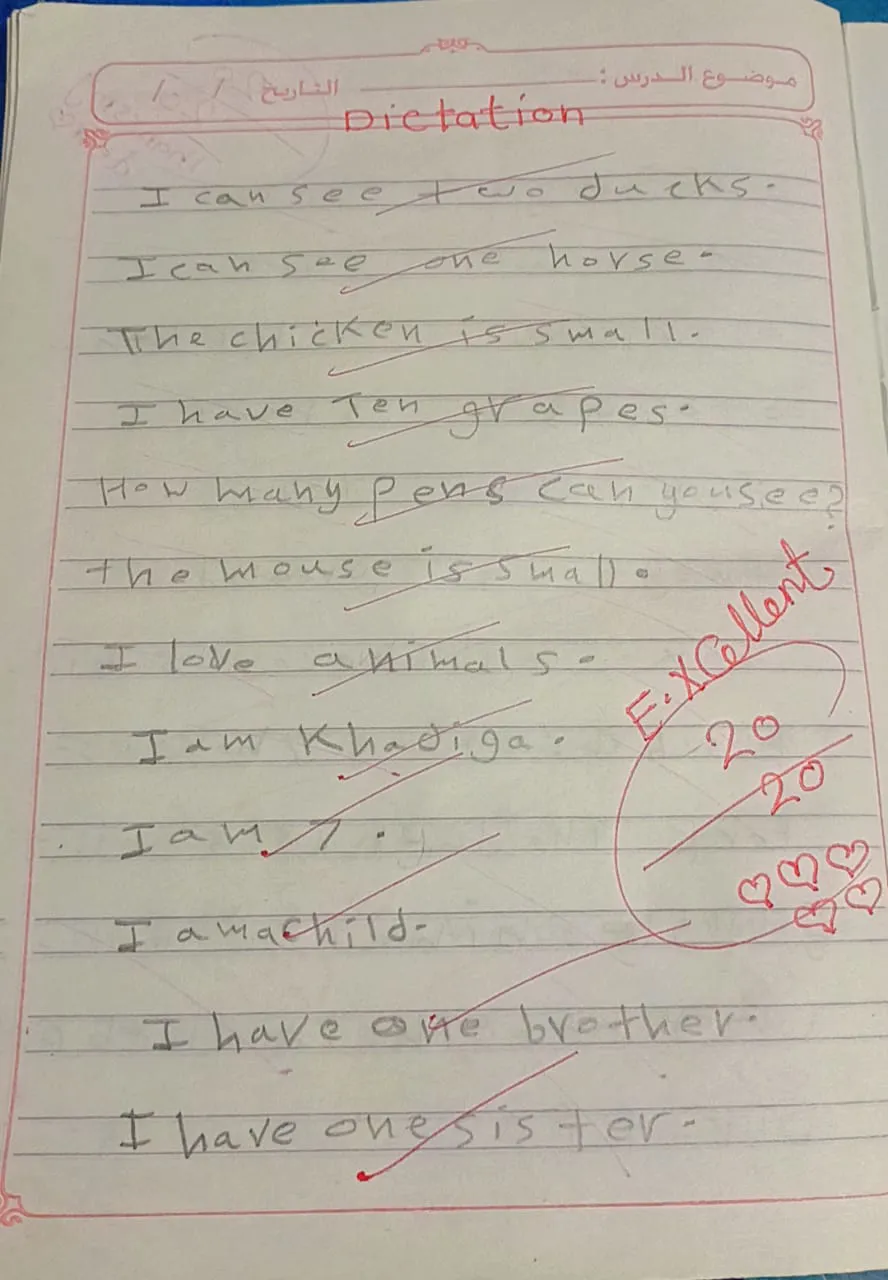 موضوع الدرس : التاريخ / /
Dictation
I can see two ducks.
I can see one horse.
The chicken is small.
I have Ten grapes.
How many pens can you see?
the mouse is small.
I love animals.
I am Khadiga.
I am 7.
I am a child.
I have one brother.
I have one sister.
E.xcellent
20
20